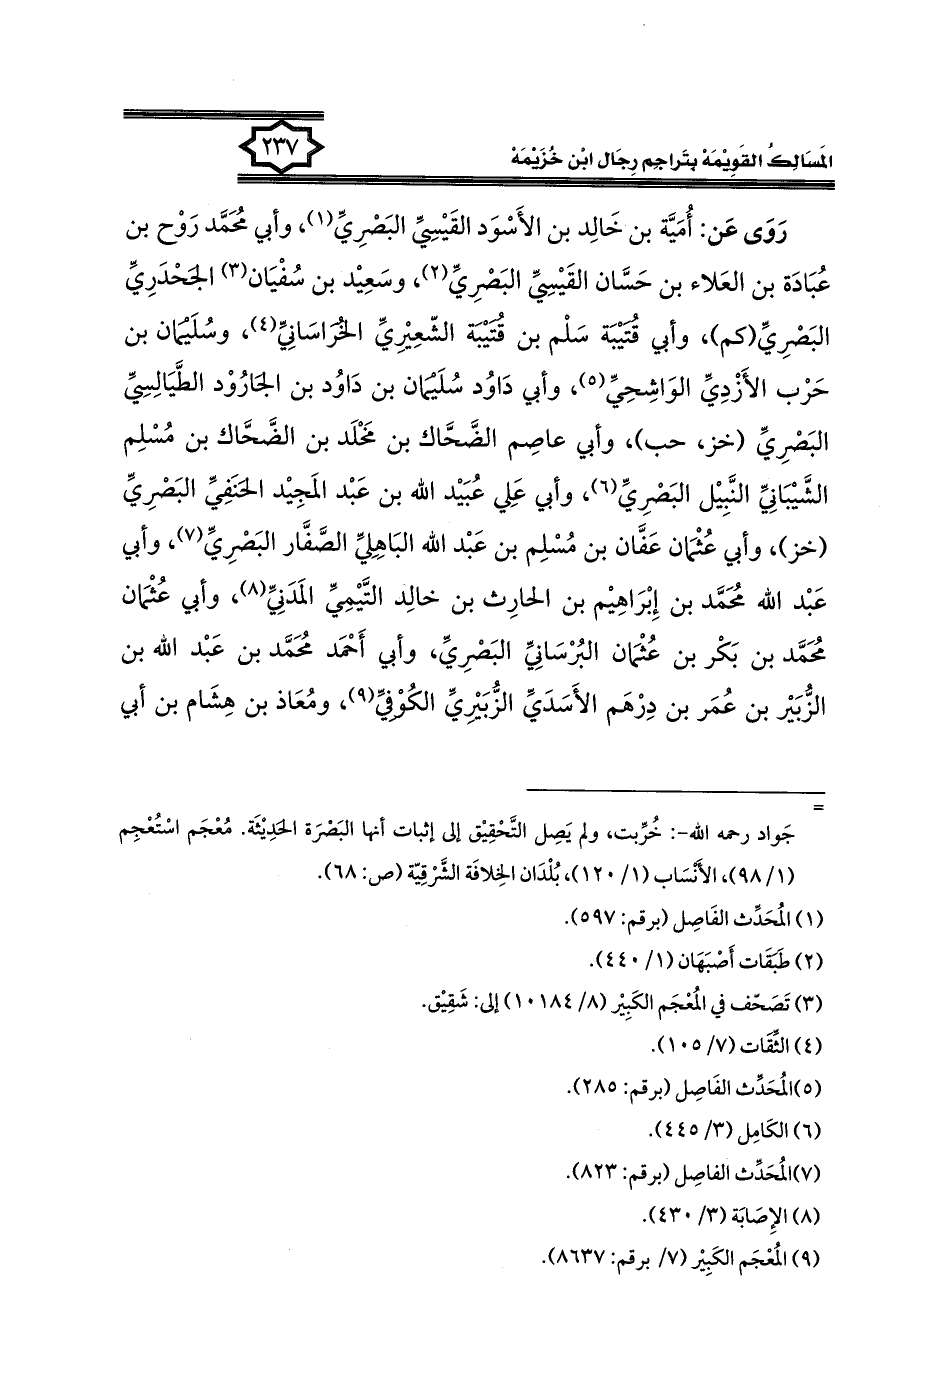 المسالك القويمة بتراجم رجال ابن خزيمة
٢٣٧
رَوَى عَن: أُمَيَّة بن خَالِد بن الأَسْوَد القَيْسِيِّ البَصْرِيِّ(١)، وأبي مُحَمَّد رَوْح بن
عُبَادَة بن العَلاء بن حَسَّان القَيْسِيِّ البَصْرِيِّ(٢)، وسَعِيْد بن سُفْيَان(٣) الجَحْدَرِيِّ
البَصْرِيِّ(كم)، وأبي قُتَيْبَة سَلْم بن قُتَيْبَة الشَّعِيْرِيِّ الخُرَاسَانِيِّ(٤)، وسُلَيْمَان بن
حَرْب الأَزْدِيِّ الوَاشِحِيِّ(٥)، وأبي دَاوُد سُلَيْمَان بن دَاوُد بن الجَارُوْد الطَّيَالِسِيِّ
البَصْرِيِّ (خز، حب)، وأبي عاصِم الضَّحَّاك بن مَخْلَد بن الضَّحَّاك بن مُسْلِم
الشَّيْبَانِيِّ النَّبِيْل البَصْرِيِّ(٦)، وأبي عَلِي عُبَيْد الله بن عَبْد المَجِيْد الحَنَفِيِّ البَصْرِيِّ
(خز)، وأبي عُثْمَان عَفَّان بن مُسْلِم بن عَبْد الله البَاهِلِيِّ الصَّفَّار البَصْرِيِّ(٧)، وأبي
عَبْد الله مُحَمَّد بن إِبْرَاهِيْم بن الحَارِث بن خالِد التَّيْمِيِّ المَدَنِيِّ(٨)، وأبي عُثْمَان
مُحَمَّد بن بَكْر بن عُثْمَان البُرْسَانِيِّ البَصْرِيِّ، وأبي أَحْمَد مُحَمَّد بن عَبْد الله بن
الزُّبَيْر بن عُمَر بن دِرْهَم الأَسَدَيِّ الزُّبَيْرِيِّ الكُوْفِيِّ(٩)، ومُعَاذ بن هِشَام بن أبي
=
جَواد رحمه الله-: خُرِّبت، ولم يَصِل التَّحْقِيْق إلى إثبات أنها البَصْرَة الحَدِيْثَة. مُعْجَم اسْتُعْجِم
(١/ ٩٨)، الأَنْسَاب (١/ ١٢٠)، بُلْدَان الخِلافَة الشَّرْقِيَّة (ص: ٦٨).
(١) المُحَدِّث الفَاصِل (برقم: ٥٩٧).
(٢) طَبَقَات أَصْبَهَان (١/ ٤٤٠).
(٣) تَصَحّف في المُعْجَم الكَبِيْر (٨/ ١٠١٨٤) إلى: شَقِيْق.
(٤) الثِّقَات (٧/ ١٠٥).
(٥)المُحَدِّث الفَاصِل (برقم: ٢٨٥).
(٦) الكَامِل (٣/ ٤٤٥).
(٧)المُحَدِّث الفاصِل (برقم: ٨٢٣).
(٨) الإِصَابَة (٣/ ٤٣٠).
(٩) المُعْجَم الكَبِيْر (٧/ برقم: ٨٦٣٧).